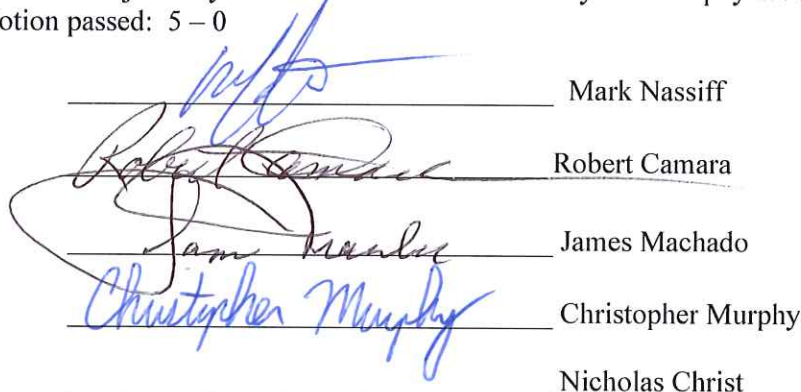 otion passed: 5 – 0
Mark Nassiff
Robert Camara Robert Camara
James Machado
Christopher Murphy Christopher Murphy
Nicholas Christ